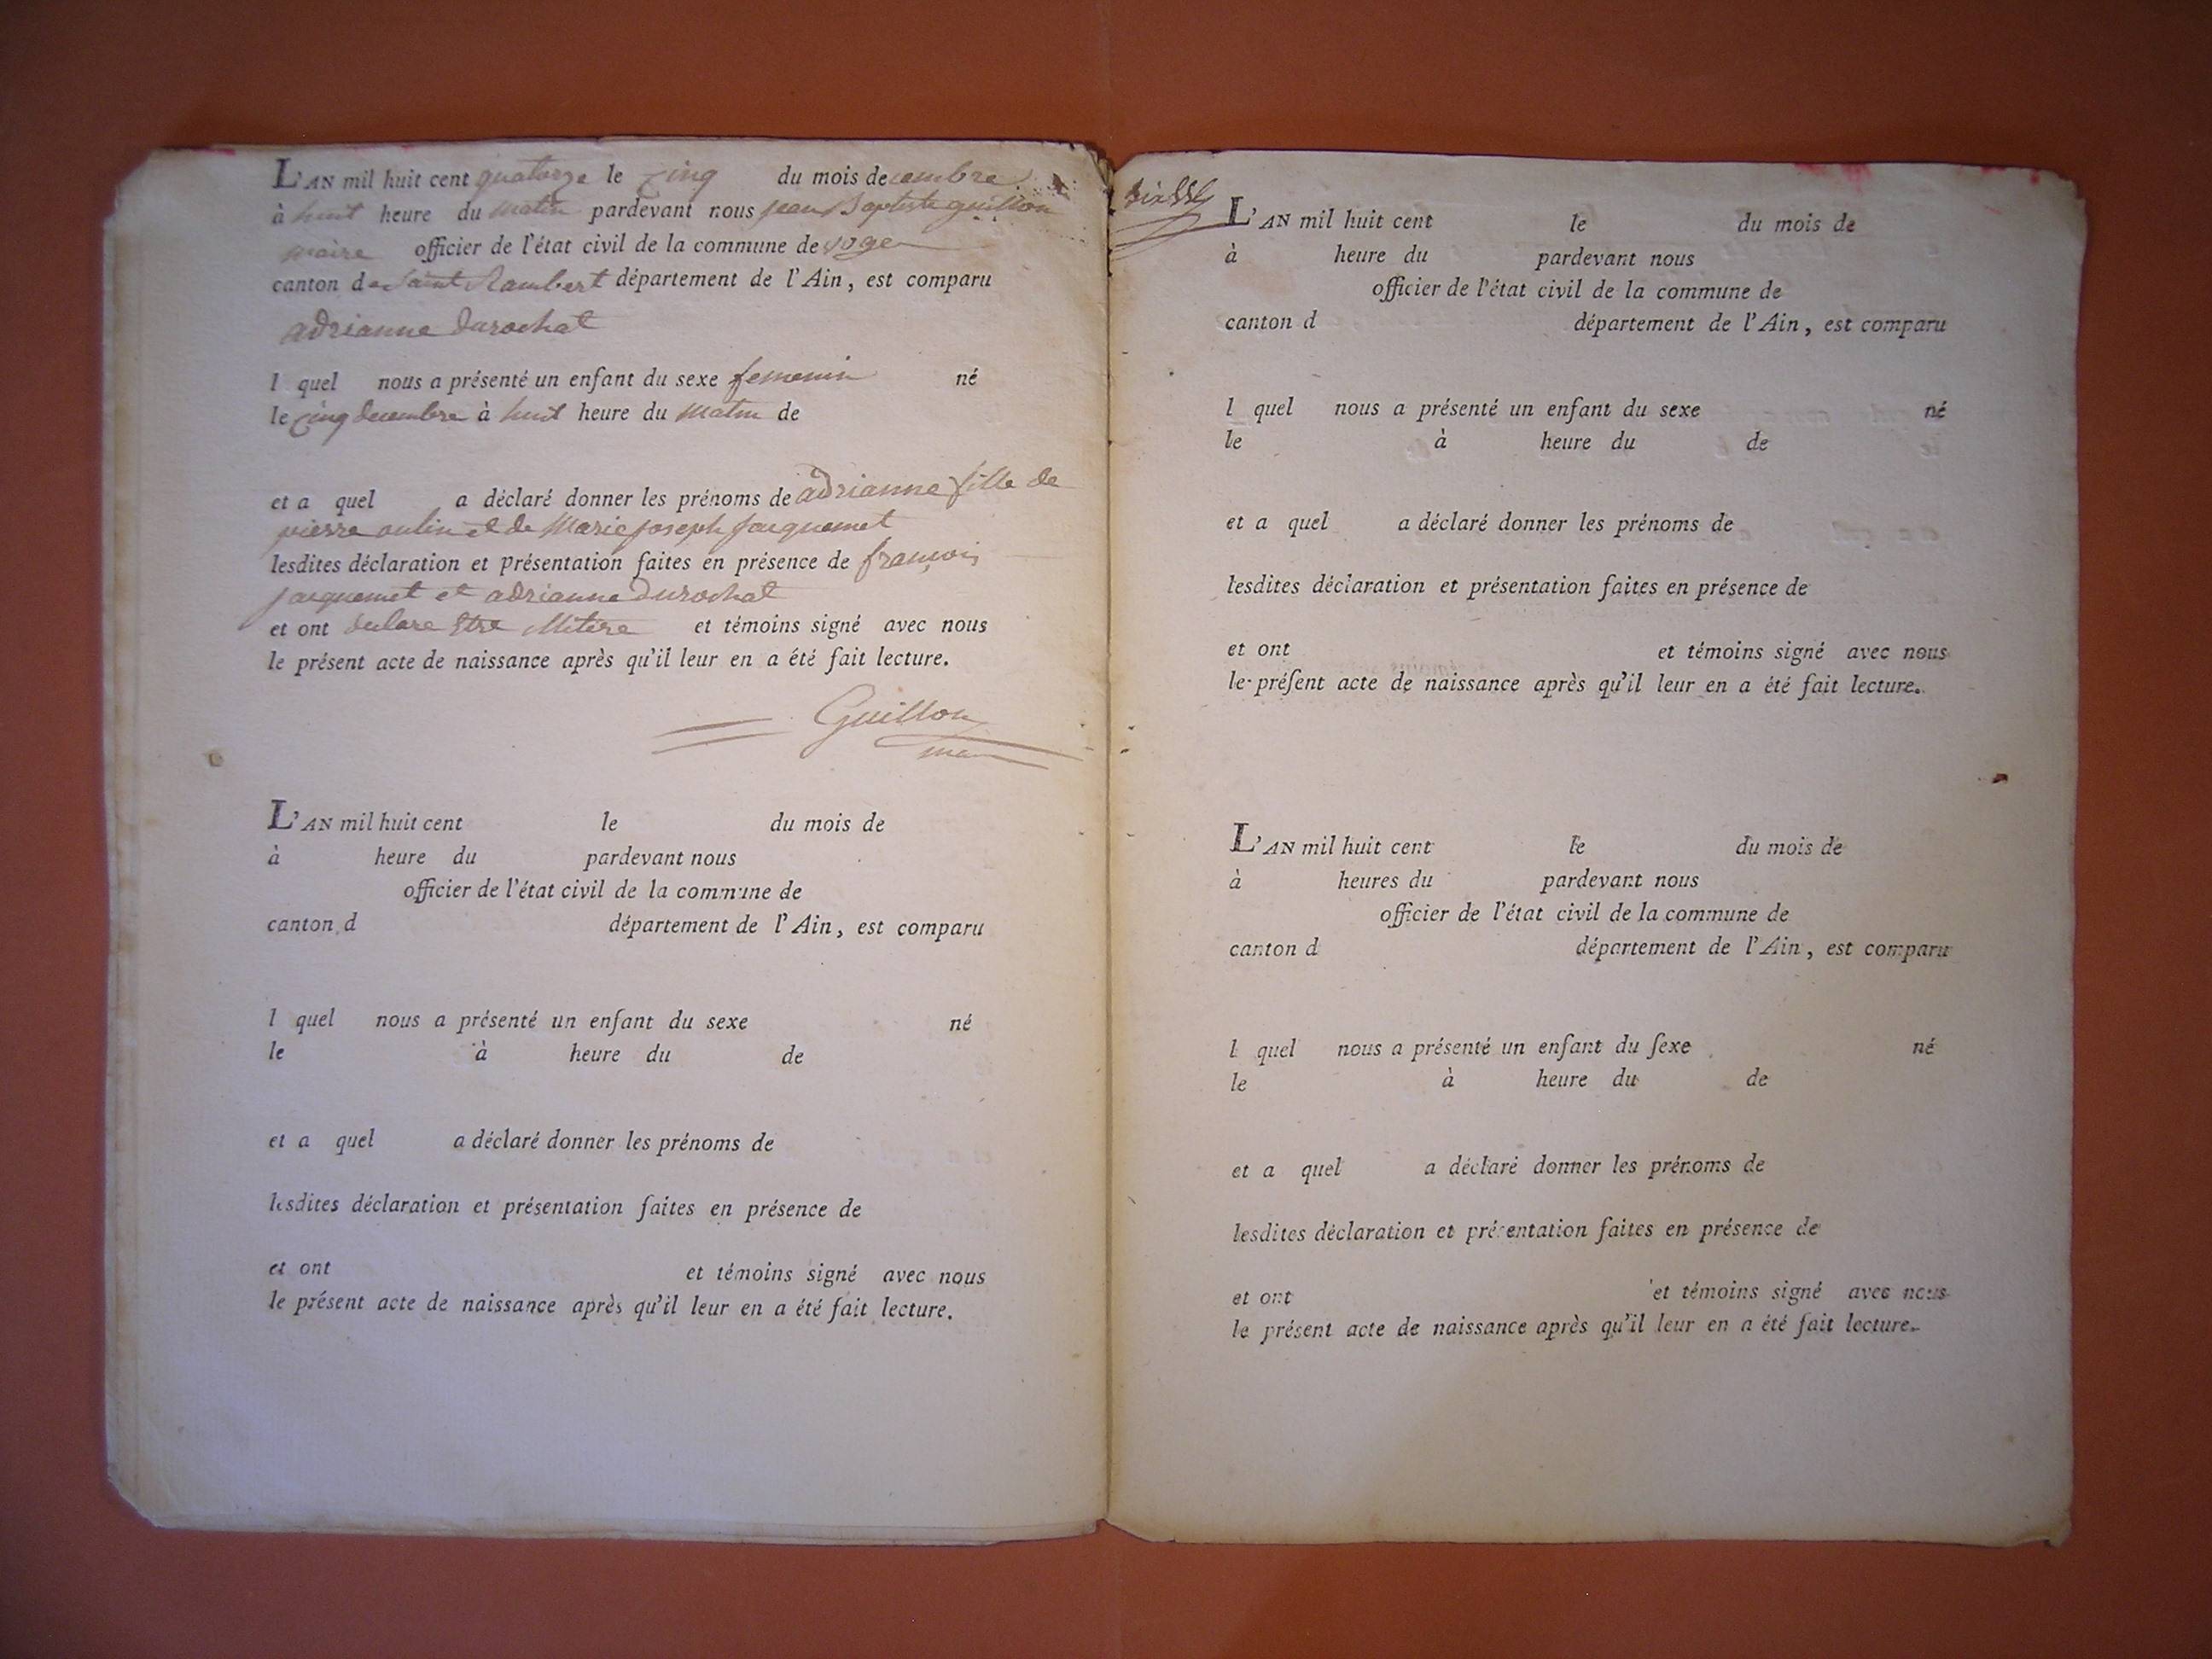 L'AN mil huit cent quatorze le cinq du mois decembre
à huit heure du matin pardevant nous jean Baptiste guillon
maire officier de l'état civil de la commune de
canton de Saint Rambert département de l'Ain, est comparu
adrianne durochat
l quel nous a présenté un enfant du sexe femenin né
le cinq decembre à huit heure du matin de
et a quel a déclaré donner les prénoms de adrianne fille de
pierre et de Marie joseph jacquemet
lesdites déclaration et présentation faites en présence de françois
jacquemet et adrianne durochat
et ont declare et témoins signé avec nous
le présent acte de naissance après qu'il leur en a été fait lecture.
Guillon
L'AN mil huit cent le du mois de
à heure du pardevant nous
officier de l'état civil de la commune de
canton d département de l'Ain, est comparu
l quel nous a présenté un enfant du sexe né
le à heure du de
et a quel a déclaré donner les prénoms de
lesdites déclaration et présentation faites en présence de
et ont et témoins signé avec nous
le présent acte de naissance après qu'il leur en a été fait lecture.
L'AN mil huit cent le du mois de
à heure du pardevant nous
officier de l'état civil de la commune de
canton d département de l'Ain, est comparu
l quel nous a présenté un enfant du sexe né
le à heure du de
et a quel a déclaré donner les prénoms de
lesdites déclaration et présentation faites en présence de
et ont et témoins signé avec nous
le préſent acte de naissance après qu'il leur en a été fait lecture.
L'AN mil huit cent le du mois de
à heures du pardevant nous
officier de l'état civil de la commune de
canton d département de l'Ain, est comparu
l quel nous a présenté un enfant du ſexe né
le à heure du de
et a quel a déclaré donner les prénoms de
lesdites déclaration et présentation faites en présence de
et ont et témoins signé avec nous
le présent acte de naissance après qu'il leur en a été fait lecture.